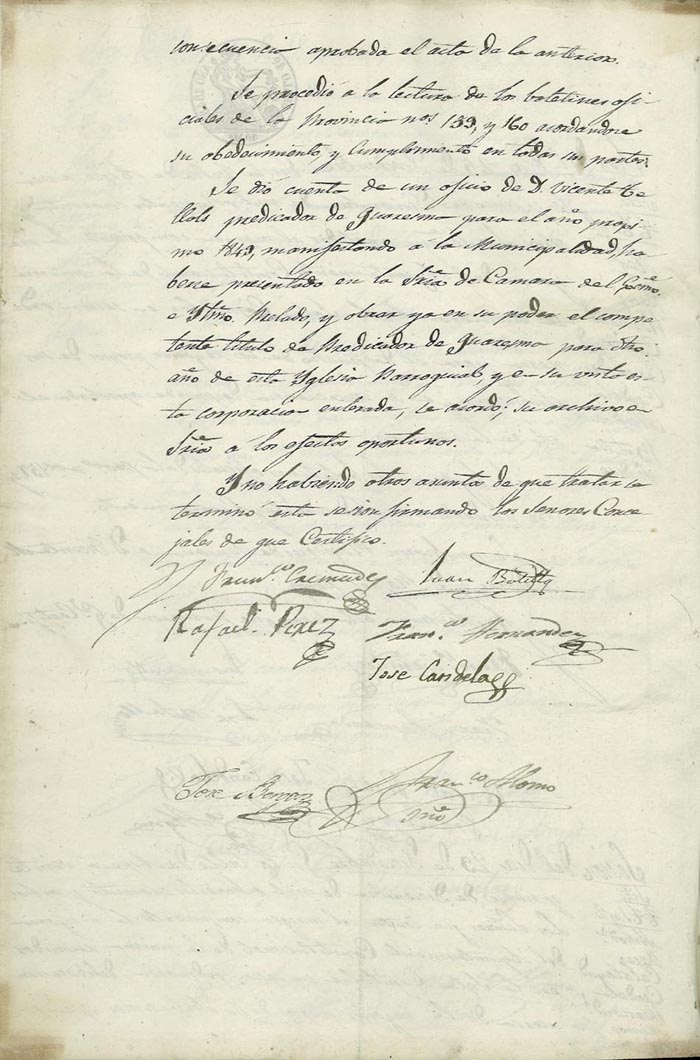 consecuencia aprobada el acta de la anterior.
Se procedió a la lectura de los boletines ofi-
ciales de la Provincia nos 159, y 160 acordandose
su obedecimiento, y cumplimiento en todas sus partes.
Se dió cuenta de un oficio de D. Vicente Te
llols predicador de Quaresma para el año proxi
mo 1849, manifestando á la Municipalidad, ha
berse presentado en la Sría de Camara del Exmo.
e Ylmo. Prelado, y obrar ya en su poder el compe
tente titulo de Predicador de Quaresma para dho.
año de esta Yglesia Parroquial, y en su vista es-
ta corporacion enterada, se acordó; su archivo en
Sría á los efectos oportunos.
Y no habiendo otros asuntos de que tratar se
terminó esta sesion firmando los Señores Conce
jales de que Certifico.
Franco. Cremades Juan Botella
Rafael Perez Franco. Hernandez
Jose Candela
Jose Franco Alonso
Srio